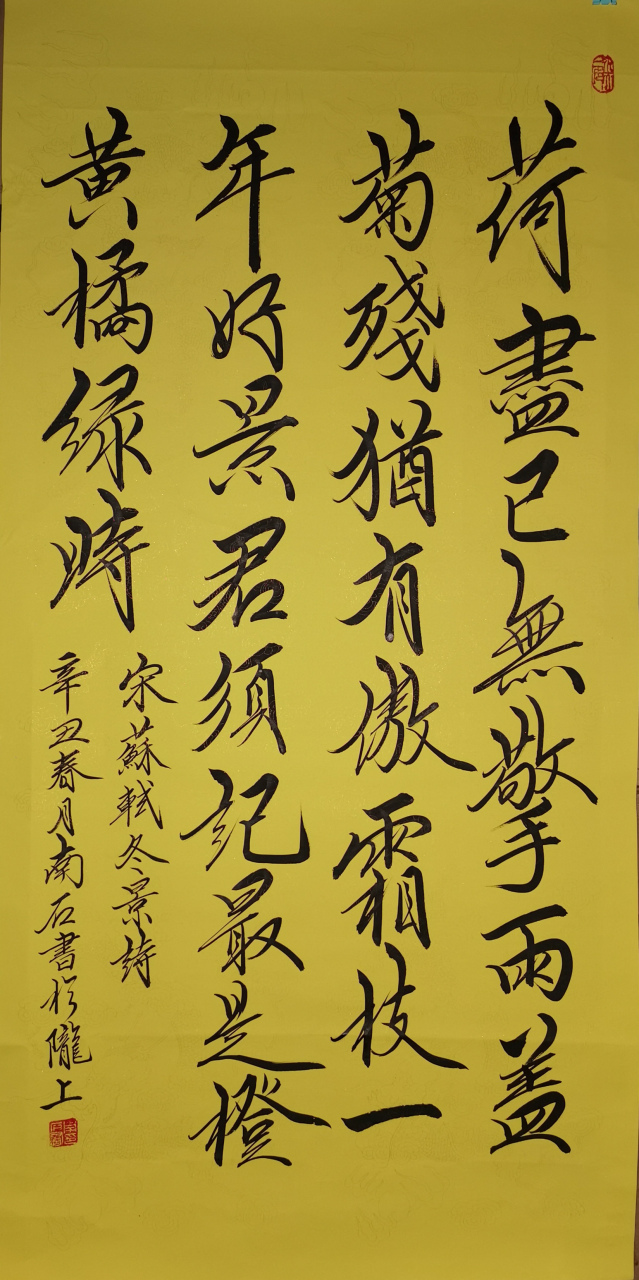 荷盡已無擎手雨蓋
菊殘猶有傲霜枝一
年好景君須記最是橙
黃橘绿時
宋蘇軾冬景詩
辛丑春月南石書於隴上